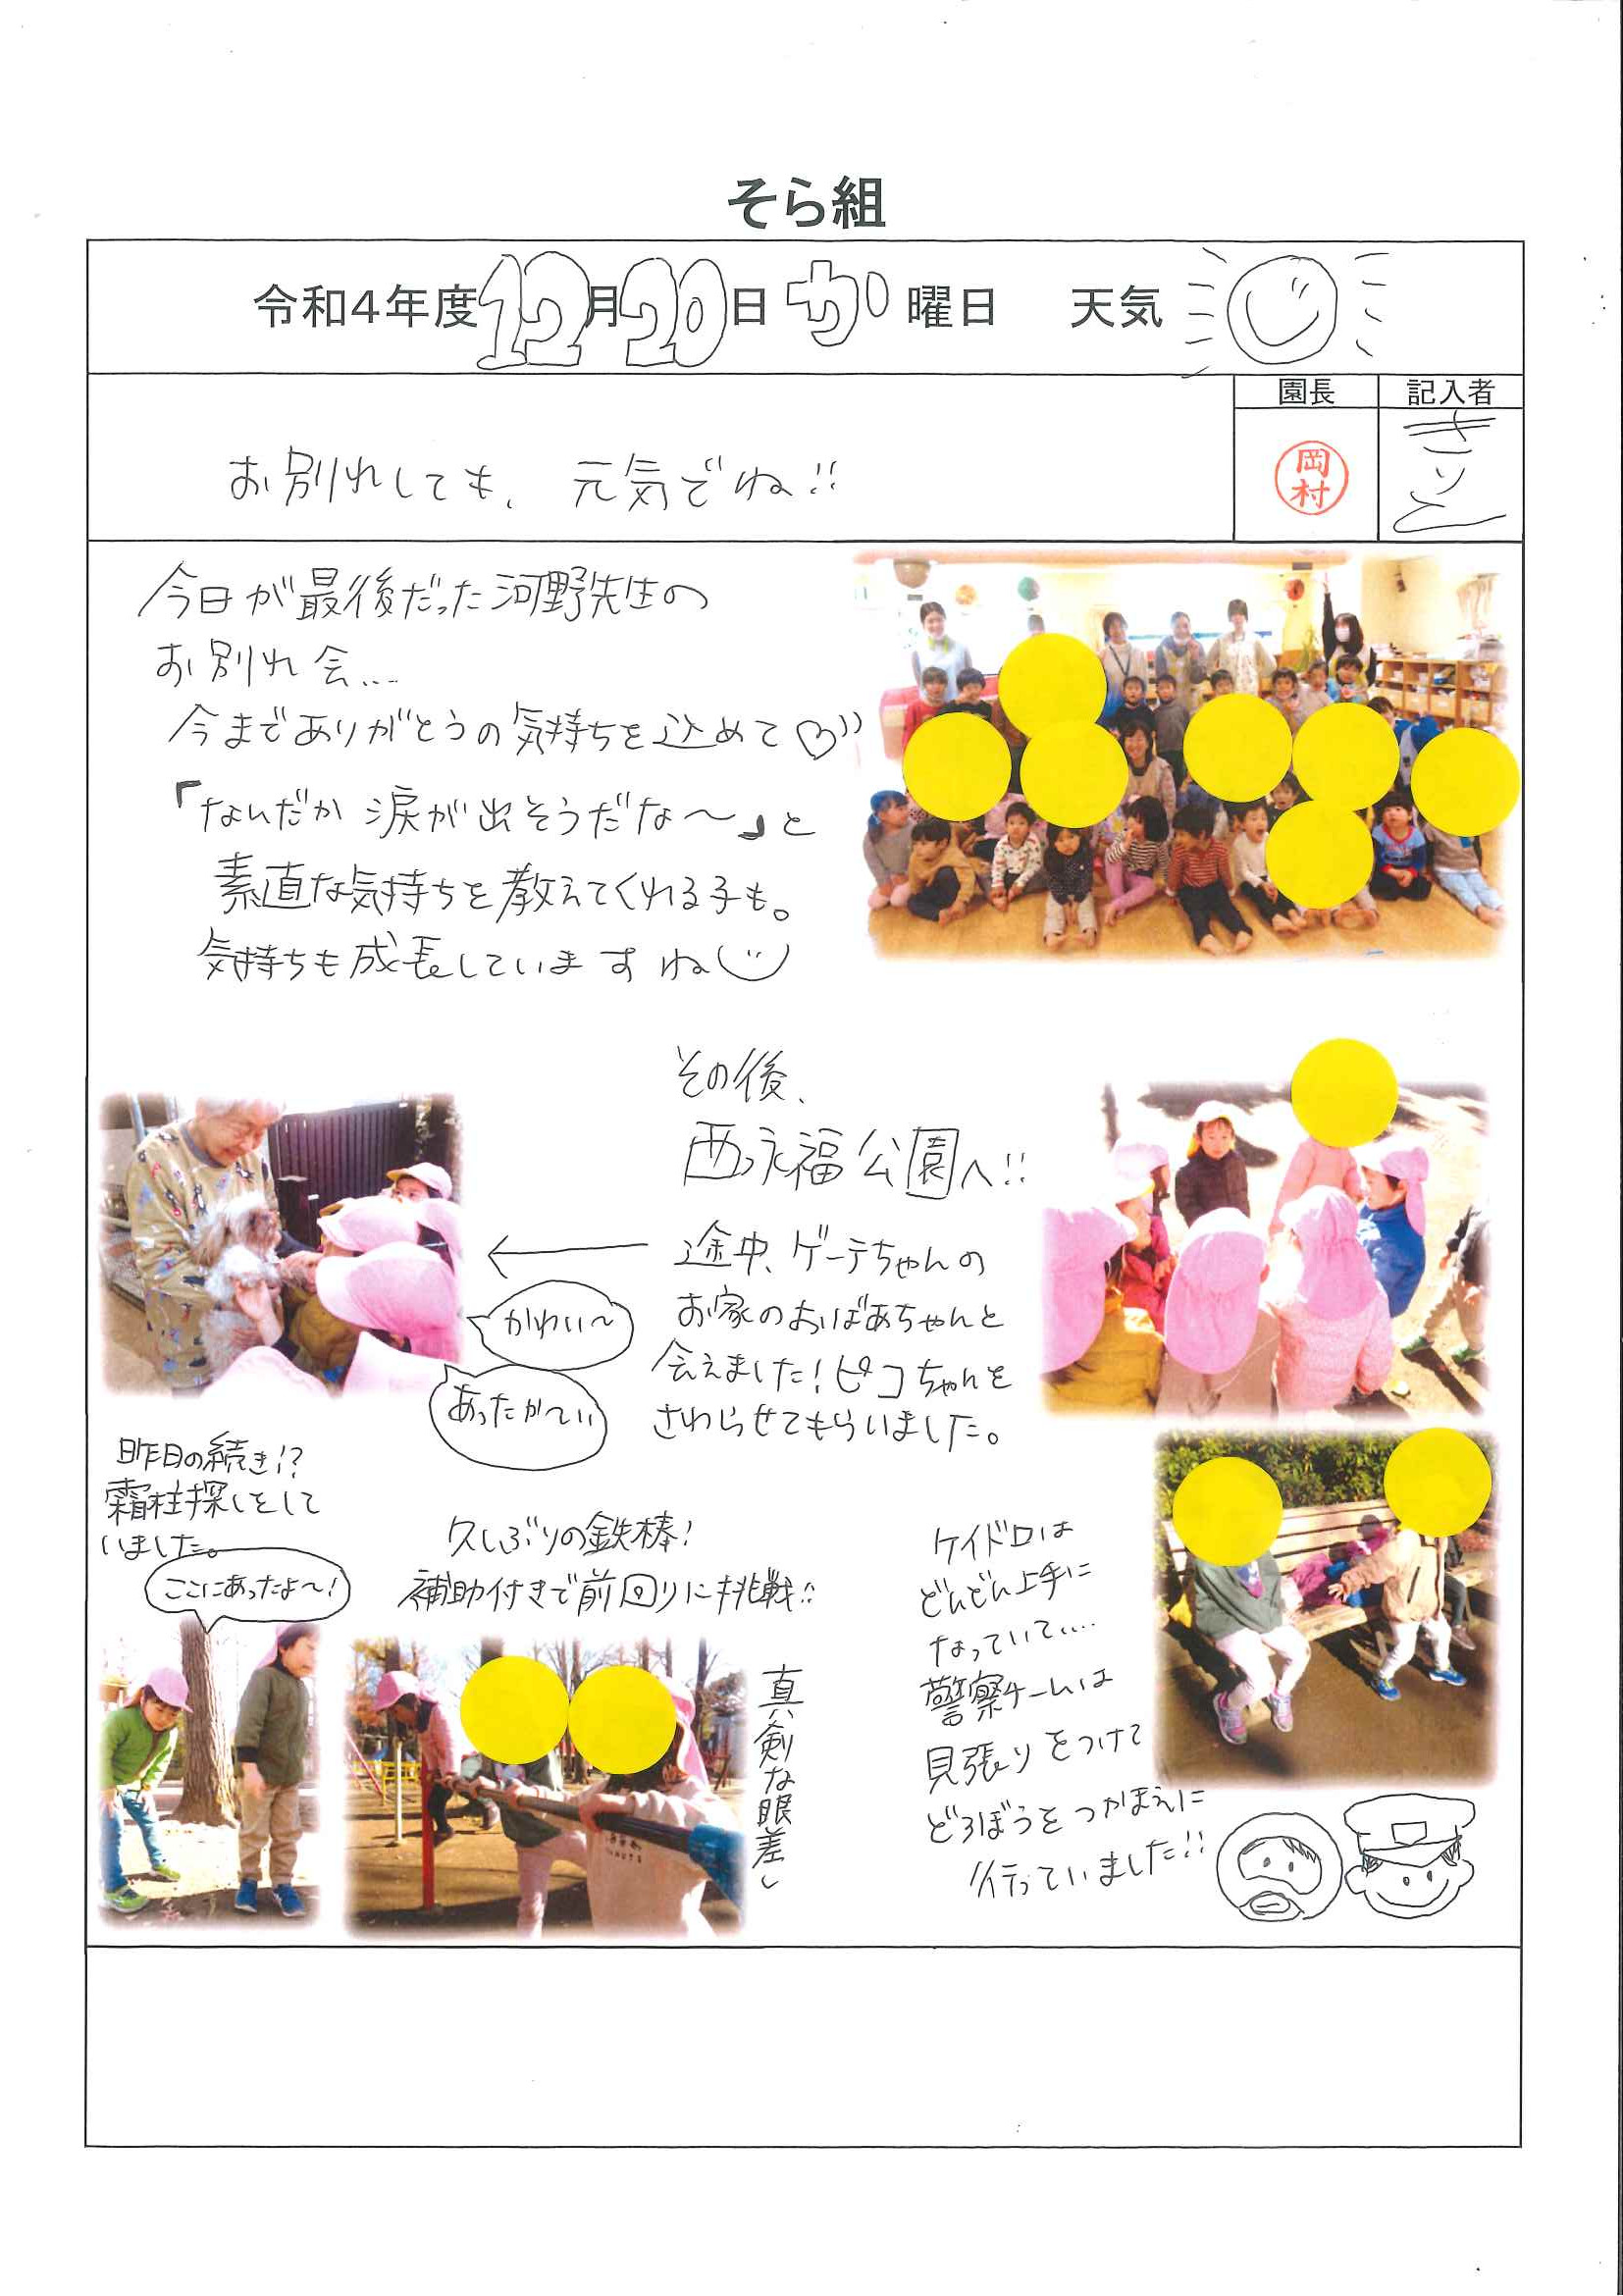 そら組
令和4年度12月20日か曜日 天気
園長 記入者
岡村
きりと
お別れしても、元気でね!!
今日が最後だった河野先生の
お別れ会...
今までありがとうの気持ちを込めて♡
「なんだか涙が出そうだな〜」と
素直な気持ちを教えてくれる子も。
気持ちも成長していますね
その後、
西永福公園へ!!
途中、ゲーテちゃんの
お家のおばあちゃんと
会えました!ピコちゃんを
さわらせてもらいました。
かわいい〜
あったか〜い
昨日の続き!?
霜柱探しをして
いました。
ここにあったよ〜!
久しぶりの鉄棒!
補助付きで前回りに挑戦!!
真剣な眼差し
ケイドロは
どんどん上手に
なっていて....
警察チームは
見張りをつけて
どろぼうをつかまえに
行っていました!!